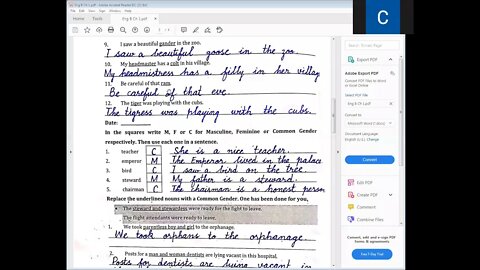 Eng B Ch 1.pdf - Adobe Acrobat Reader DC (32-bit)
File Edit View Sign Window Help
Home Tools Eng B Ch 1.pdf
C
9. I saw a beautiful gander in the zoo.
I saw a beautiful goose in the zoo.
10. My headmaster has a colt in his village.
My headmistress has a filly in her villag
11. Be careful of that ram.
Be careful of that eve.
12. The tiger was playing with the cubs.
The tigress was playing with the cubs.
Date:
In the squares write M, F or C for Masculine, Feminine or Common Gender
respectively. Then use each one in a sentence.
1. teacher C She is a nice teacher.
2. emperor M The Emperor lived in the palace
3. bird C I saw a bird on the tree.
4. steward M My father is a steward.
5. chairman C The chairman is a honest person
Replace the underlined nouns with a Common Gender. One has been done for you,
• The steward and stewardess were ready for the flight to leave.
The flight attendants were ready to leave.
1. We took parentless boy and girl to the orphanage.
We took orphans to the orphanage.
2. Posts for a man and woman dentists are lying vacant in this hospital.
Posts for dentists are lying vacant in
Export PDF
Adobe Export PDF
Convert PDF Files to Word or Excel Online
Select PDF File
Eng B Ch 1.pdf
Convert to
Microsoft Word (*.docx)
Document Language:
English (U.S.) Change
Convert
Edit PDF
Create PDF
Comment
Combine Files
Convert, edit and e-sign PDF forms & agreements
Free 7-Day Trial